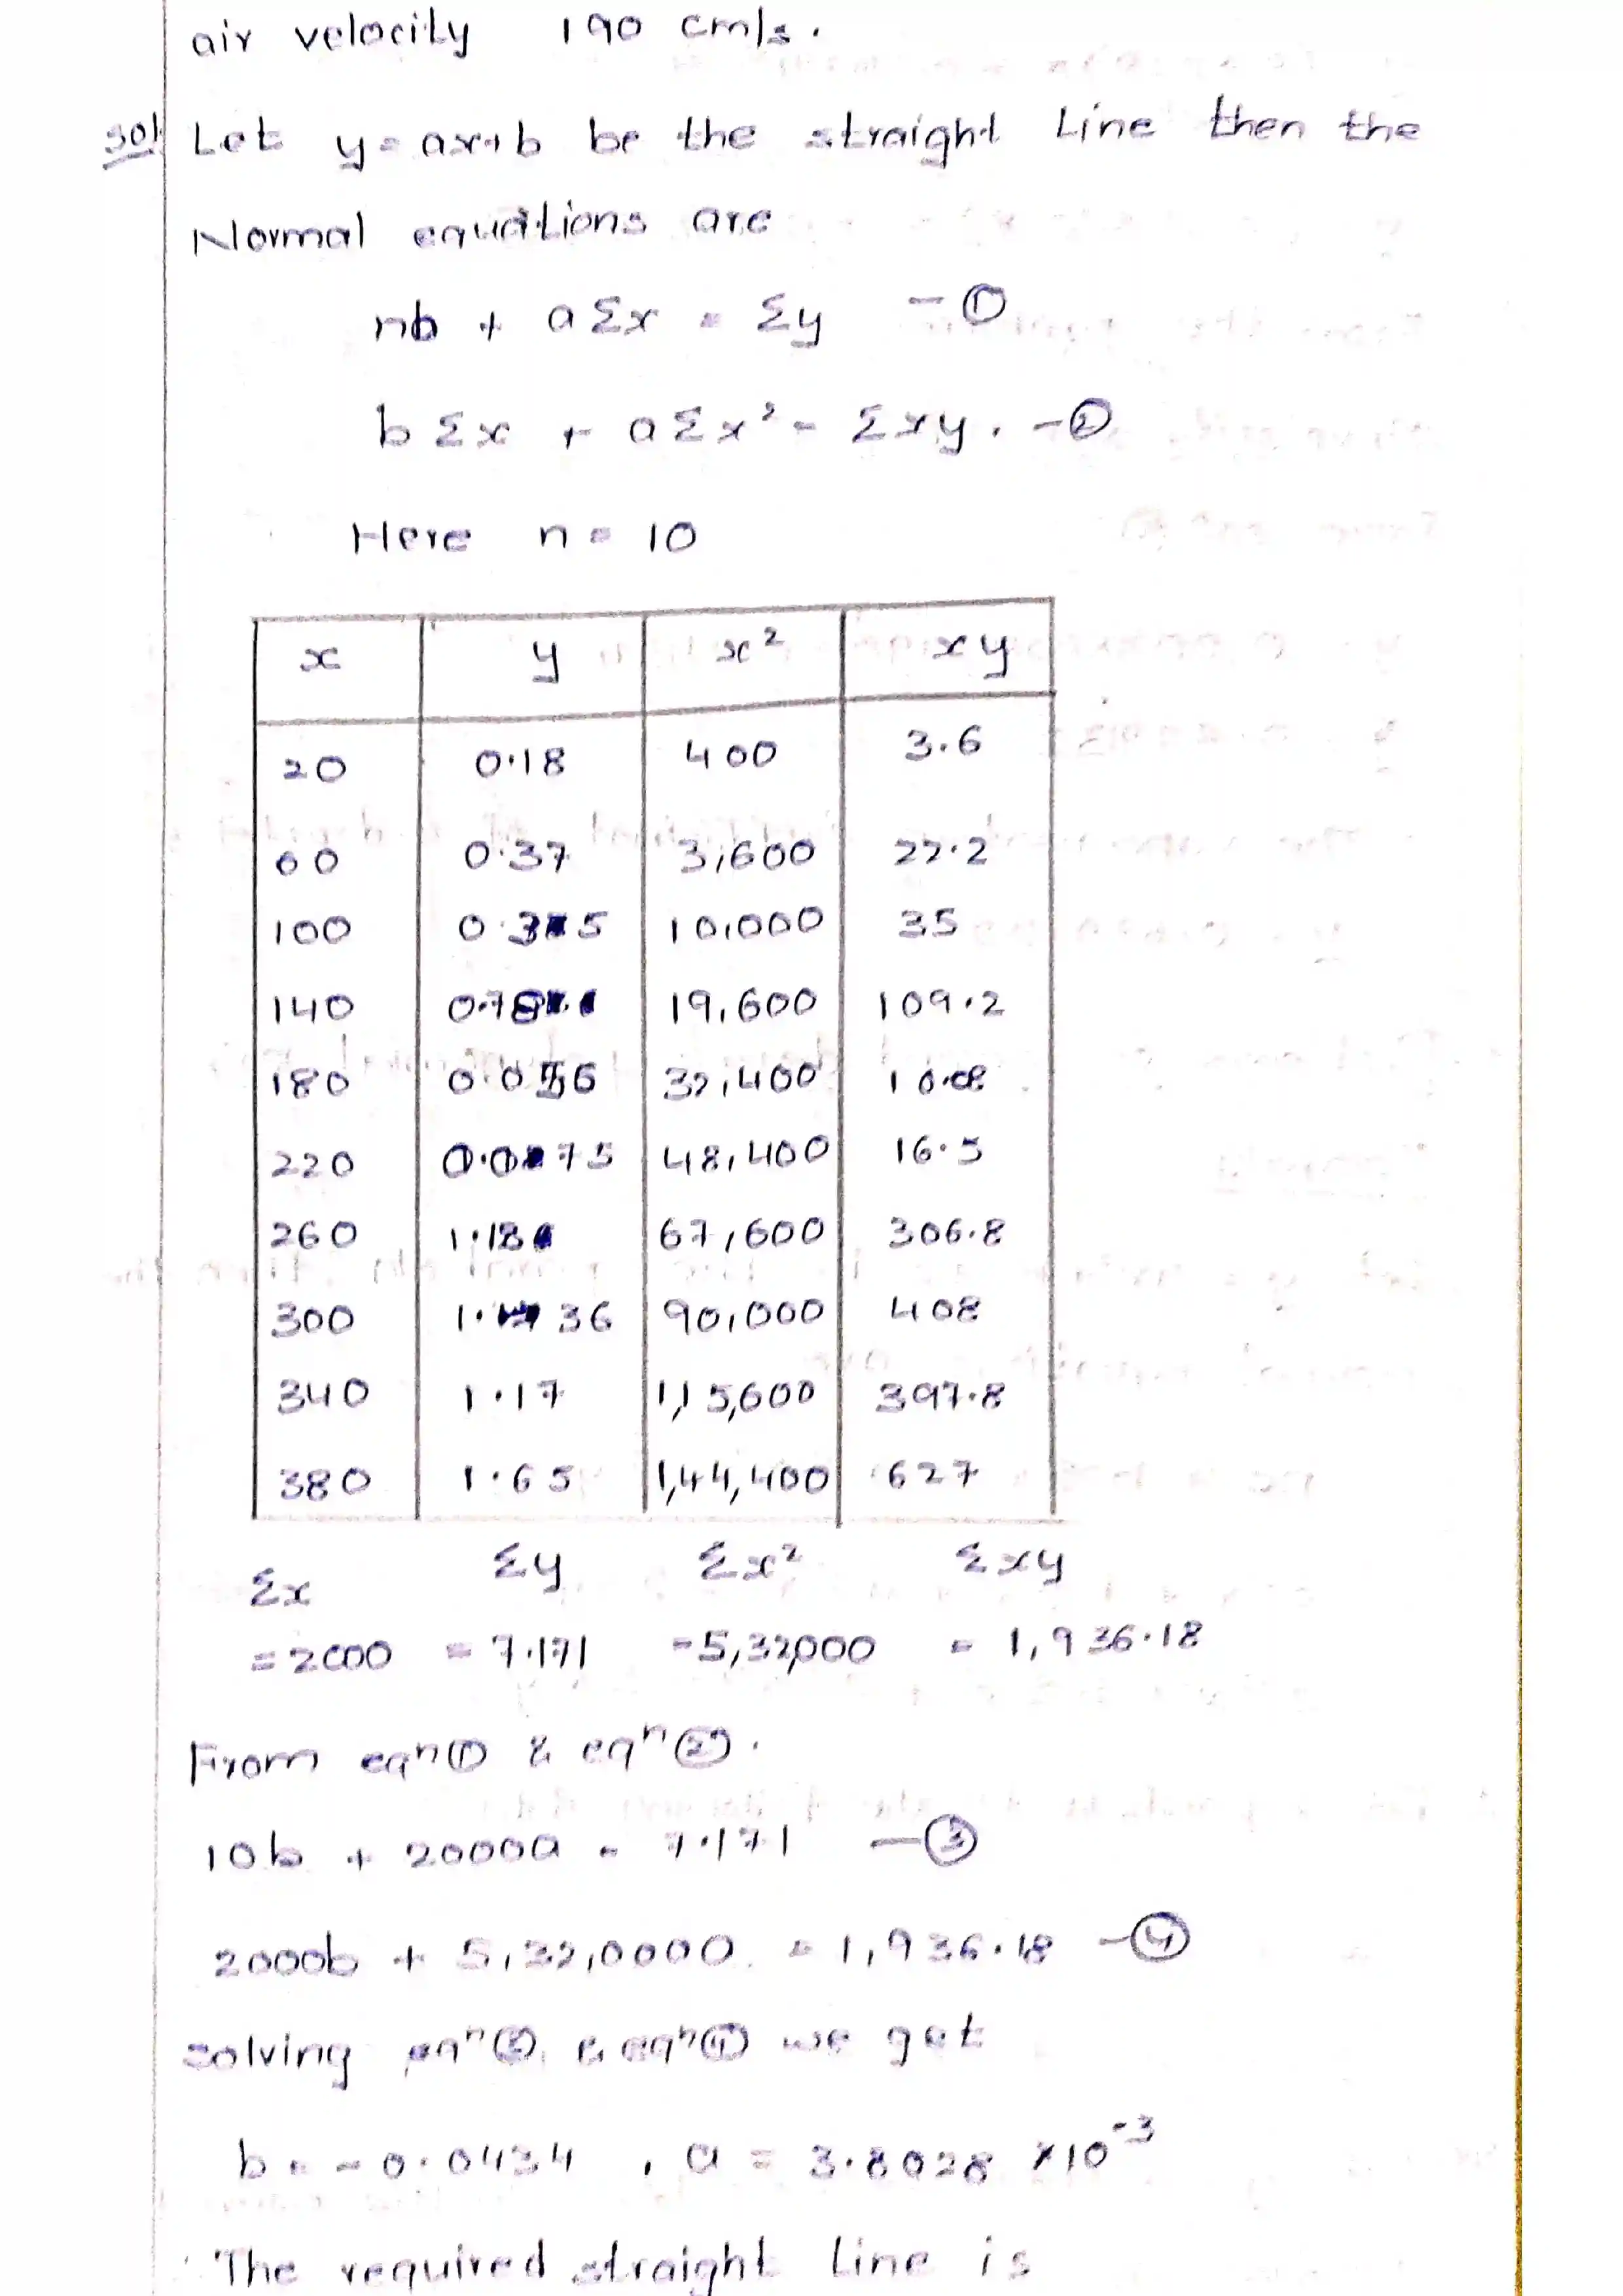 air velocity 190 cm/s.
sol Let y = ax+b be the straight Line then the
Normal equations are
nb + aΣx = Σy - ①
bΣx + aΣx² = Σxy. - ②
Here n = 10
x y x² xy
20 0.18 400 3.6
60 0.37 3,600 22.2
100 0.35 10,000 35
140 0.78 19,600 109.2
180 0.056 32,400 10.08
220 0.075 48,400 16.5
260 1.18 67,600 306.8
300 1.36 90,000 408
340 1.17 1,15,600 397.8
380 1.65 1,44,400 627
Σx Σy Σx² Σxy
=2000 = 7.171 =5,32,000 = 1,936.18
From eqⁿ① & eqⁿ②.
10b + 2000a = 7.171 - ③
2000b + 5,32,0000 = 1,936.18 - ④
solving eqⁿ③ & eqⁿ④ we get
b = -0.0434, a = 3.8028 × 10⁻³
The required straight line is